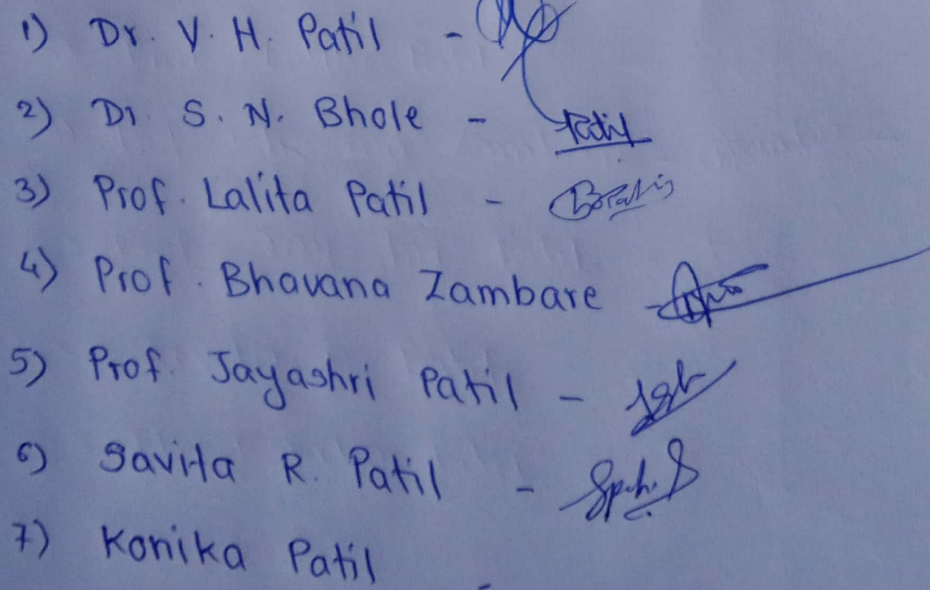 1) Dr. V. H. Patil -
2) Dr S. N. Bhole - Patil
3) Prof. Lalita Patil -
4) Prof. Bhavana Zambare -
5) Prof. Jayashri Patil -
6) Savita R. Patil -
7) Konika Patil -